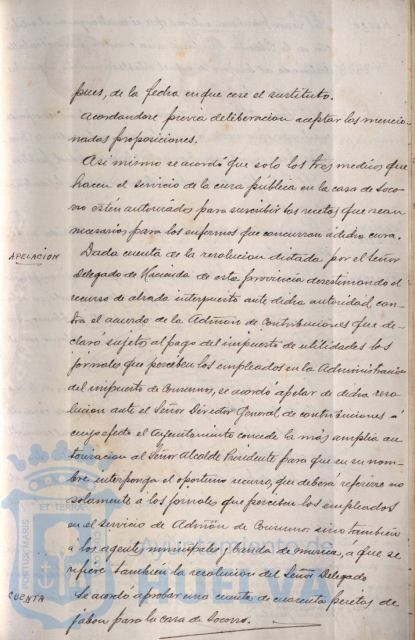 pues, de la fecha en que cese el sustituto.
Acordandose previa deliberacion aceptar las mencio-
nadas proposiciones.
Asi mismo se acordó que solo los tres medicos que
hacen el servicio de la cura pública en la casa de Soco-
rro estén autorizados para suscribir las recetas que sean
necesarias para los enfermos que concurran á dicha cura.
APELACION
Dada cuenta de la resolucion dictada por el Señor
Delegado de Hacienda de esta provincia desestimando el
recurso de alzada interpuesto ante dicha autoridad con-
tra el acuerdo de la Admon de Contribuciones que de-
claró sujetos al pago del impuesto de utilidades los
jornales que perciben los empleados en la Administracion
del impuesto de Consumos, se acordó apelar de dicha reso-
lucion ante el Señor Director General de contribuciones á
cuyo efecto el Ayuntamiento concede la más amplia au-
torizacion al Señor Alcalde Presidente para que en su nom-
bre interponga el oportuno recurso, que deberá referirse no
solamente á los jornales que perciben los empleados
en el servicio de Admon de Consumos sino tambien
a los agentes municipales y banda de musica, a que se
refiere tambien la resolucion del Señor Delegado
CUENTA
Se acordó aprobar una cuenta de cuarenta pesetas de
jabon para la casa de Socorro.
PORTUS MARIS
ET TERRAE
Ayuntamiento de